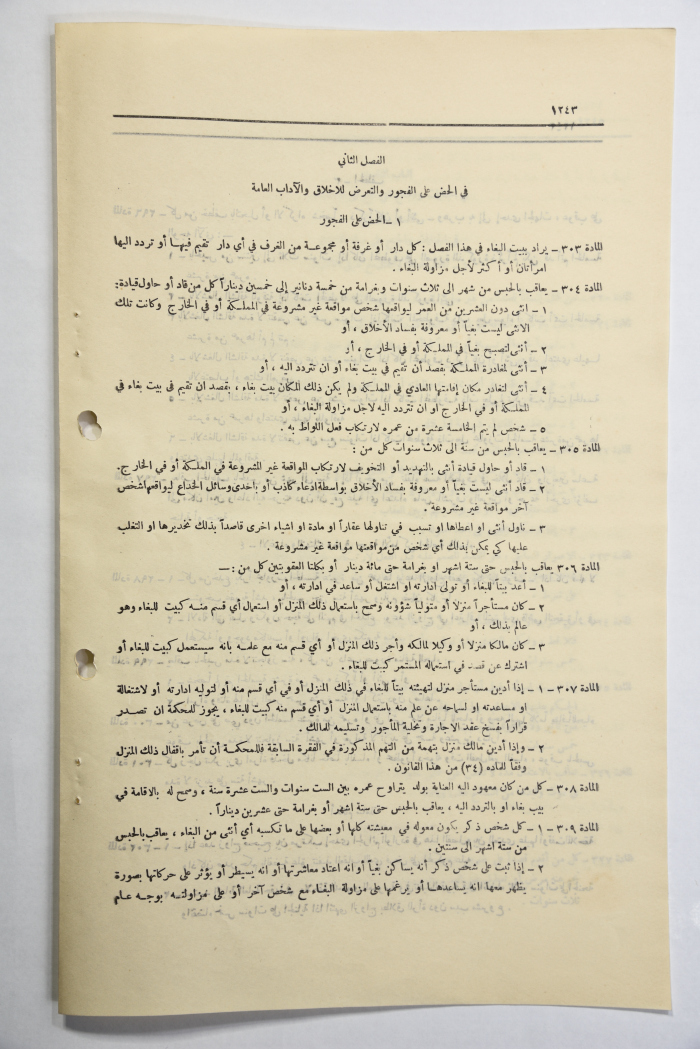 ١٢٤٣
الفصل الثاني
في الحض على الفجور والتعرض للاخلاق والآداب العامة
١ - الحض على الفجور
المادة ٣٠٣ - يراد ببيت البغاء في هذا الفصل : كل دار أو غرفة أو مجموعة من الغرف في أي دار تقيم فيها أو تردد اليها
امرأتان أو أكثر لأجل مزاولة البغاء .
المادة ٣٠٤ - يعاقب بالحبس من شهر الى ثلاث سنوات وبغرامة من خمسة دنانير إلى خمسين ديناراً كل من قاد أو حاول قيادة :
١ - انثى دون العشرين من العمر ليواقعها شخص مواقعة غير مشروعة في المملكة أو في الخارج وكانت تلك
الانثى ليست بغياً أو معروفة بفساد الأخلاق ، أو
٢ - أنثى لتصبح بغياً في المملكة أو في الخارج ، أو
٣ - أنثى لمغادرة المملكة بقصد أن تقيم في بيت بغاء أو ان تتردد اليه ، أو
٤ - أنثى لتغادر مكان إقامتها العادي في المملكة ولم يكن ذلك المكان بيت بغاء ، بقصد ان تقيم في بيت بغاء في
المملكة أو في الخارج او ان تتردد اليه لاجل مزاولة البغاء ، أو
٥ - شخص لم يتم الخامسة عشرة من عمره لارتكاب فعل اللواط به .
المادة ٣٠٥ - يعاقب بالحبس من سنة الى ثلاث سنوات كل من :
١ - قاد أو حاول قيادة أنثى بالتهديد أو التخويف لارتكاب المواقعة غير المشروعة في المملكة أو في الخارج .
٢ - قاد أنثى ليست بغياً أو معروفة بفساد الأخلاق بواسطة ادعاء كاذب أو باحدى وسائل الخداع ليواقعها شخص
آخر مواقعة غير مشروعة .
٣ - ناول أنثى او اعطاها او تسبب في تناولها عقاراً او مادة او اشياء اخرى قاصداً بذلك تخديرها او التغلب
عليها كي يمكن بذلك أي شخص من مواقعتها مواقعة غير مشروعة .
المادة ٣٠٦ يعاقب بالحبس حتى ستة اشهر او بغرامة حتى مائة دينار أو بكلتا العقوبتين كل من : —
١ - أعد بيتاً للبغاء أو تولى ادارته او اشتغل أو ساعد في ادارته ، أو
٢ - كان مستأجراً منزلا أو متولياً شؤونه وسمح باستعمال ذلك المنزل أو استعمال أي قسم منه كبيت للبغاء وهو
عالم بذلك ، أو
٣ - كان مالكا منزلا أو وكيلا لمالكه وأجر ذلك المنزل أو أي قسم منه مع علمه بانه سيستعمل كبيت للبغاء أو
اشترك عن قصد في استعماله المستمر كبيت للبغاء .
المادة ٣٠٧ - ١ - إذا أدين مستأجر منزل لتهيئته بيتاً للبغاء في ذلك المنزل أو في أي قسم منه أو لتوليه ادارته أو لاشتغاله
او مساعدته او لسماحه عن علم منه باستعمال المنزل أو أي قسم منه كبيت للبغاء ، يجوز للمحكمة ان تصدر
قراراً بفسخ عقد الاجارة وتخلية المأجور وتسليمه للمالك .
٢ - وإذا أدين مالك منزل بتهمة من التهم المذكورة في الفقرة السابقة فللمحكمة أن تأمر باقفال ذلك المنزل
وفقاً للماده (٣٤) من هذا القانون .
المادة ٣٠٨ - كل من كان معهود اليه العناية بولد يتراوح عمره بين الست سنوات والست عشرة سنة ، وسمح له بالاقامة في
بيب بغاء او بالتردد اليه ، يعاقب بالحبس حتى ستة اشهر أو بغرامة حتى عشرين ديناراً .
المادة ٣٠٩ - ١ - كل شخص ذكر يكون معوله في معيشته كلها أو بعضها على ما تكسبه أي أنثى من البغاء ، يعاقب بالحبس
من ستة اشهر الى سنتين .
٢ - إذا ثبت على شخص ذكر أنه يساكن بغياً أو انه اعتاد معاشرتها أو انه يسيطر أو يؤثر على حركاتها بصورة
يظهر معها انه يساعدها أو يرغمها على مزاولة البغاء مع شخص آخر أو على مزاولته بوجه عام